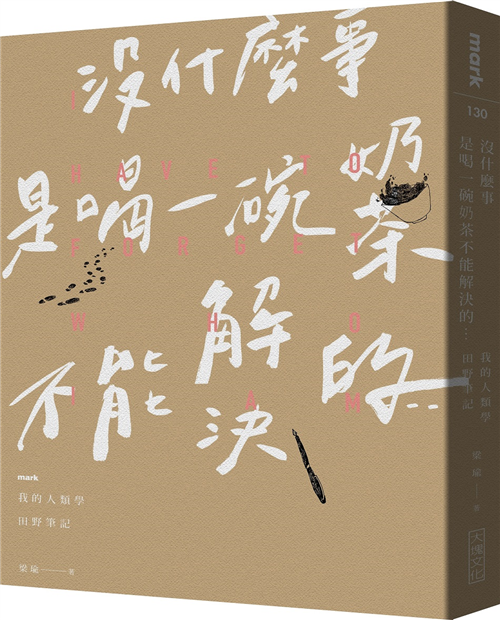 沒什麼事
是喝一碗奶茶
不能解決的…
I
HAVE TO
FORGET
WHO
I AM
mark
我的人類學
田野筆記
梁瑜——著
mark
130
沒什麼事
是喝一碗奶茶不能解決的…
我的人類學
田野筆記
梁瑜——著
大塊文化